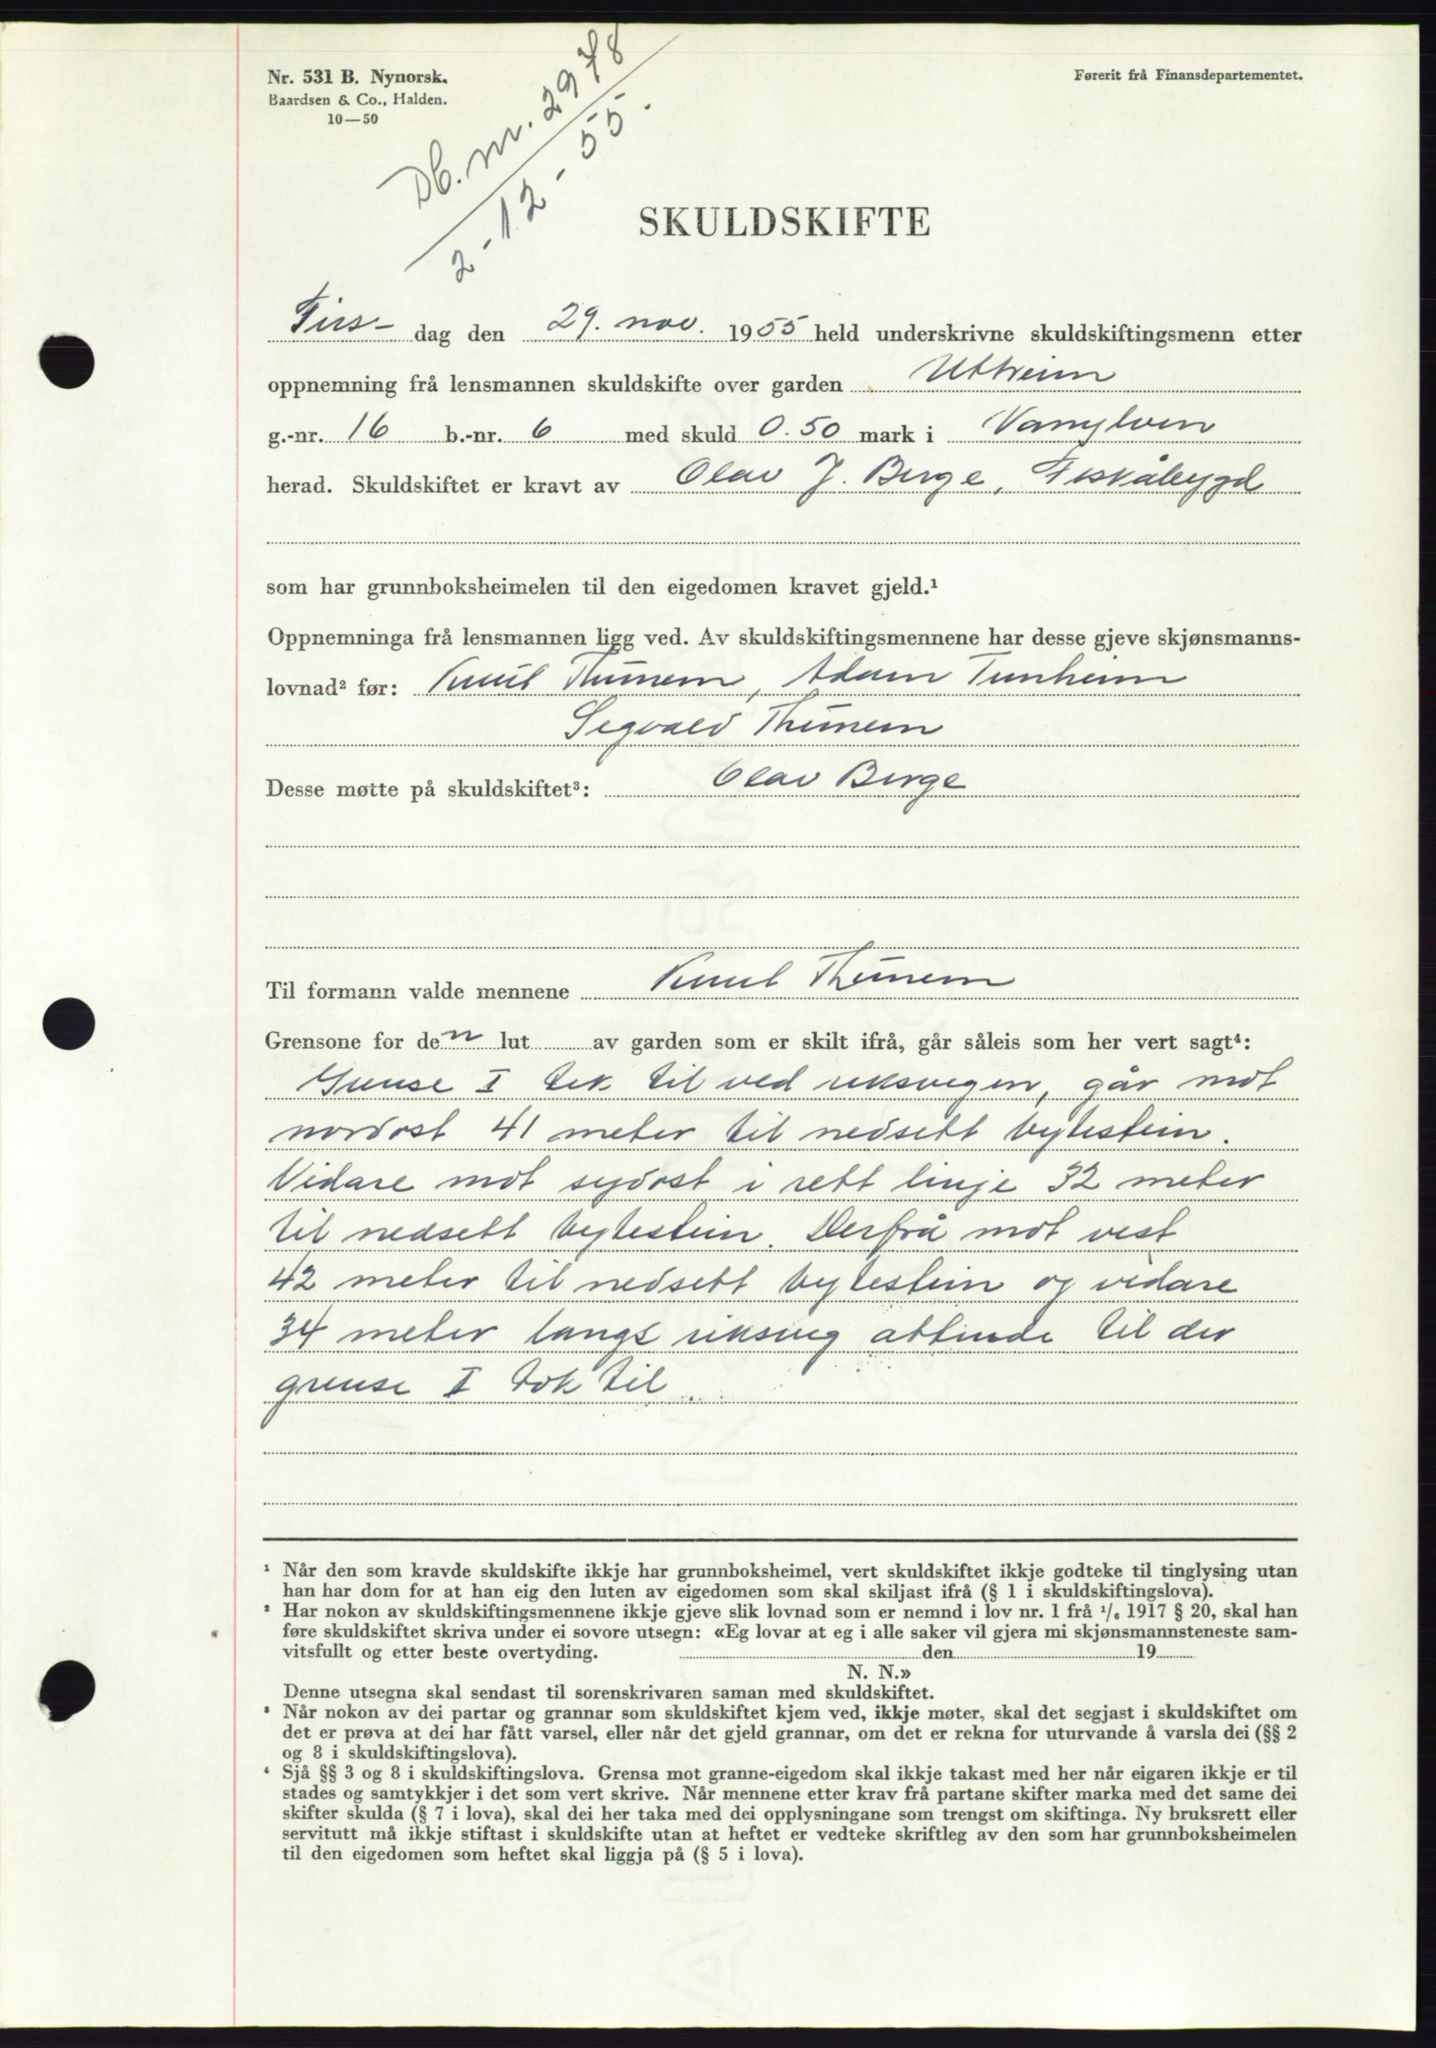 Nr. 531 B. Nynorsk.
Baardsen & Co., Halden.
10—50
Førerit frå Finansdepartementet.
Db. nr. 2978
2-12-55.
SKULDSKIFTE
Tirs- dag den 29. nov. 1955 held underskrivne skuldskiftingsmenn etter
oppnemning frå lensmannen skuldskifte over garden Utheim
g.-nr. 16 b.-nr. 6 med skuld 0.50 mark i Vanylven
herad. Skuldskiftet er kravt av Olav J. Berge, Fiskåbygd
som har grunnboksheimelen til den eigedomen kravet gjeld.¹
Oppnemninga frå lensmannen ligg ved. Av skuldskiftingsmennene har desse gjeve skjønsmanns-
lovnad² før: Knut Thunem, Adam Tunheim
Segvald Thunem
Desse møtte på skuldskiftet³: Olav Berge
Til formann valde mennene Knut Thunem
Grensone for den lut av garden som er skilt ifrå, går såleis som her vert sagt⁴:
Grense I tek til ved riksvegen, går mot
nordost 41 meter til nedsett bytestein.
Vidare mot sydost i rett linje 32 meter
til nedsett bytestein. Derfrå mot vest
42 meter til nedsett bytestein og vidare
34 meter langs riksveg attende til der
grense I tok til.
¹ Når den som kravde skuldskifte ikkje har grunnboksheimel, vert skuldskiftet ikkje godteke til tinglysing utan
han har dom for at han eig den luten av eigedomen som skal skiljast ifrå (§ 1 i skuldskiftingslova).
² Har nokon av skuldskiftingsmennene ikkje gjeve slik lovnad som er nemnd i lov nr. 1 frå ¹/₆ 1917 § 20, skal han
føre skuldskiftet skriva under ei sovore utsegn: «Eg lovar at eg i alle saker vil gjera mi skjønsmannsteneste sam-
vitsfullt og etter beste overtyding. den 19
N. N.»
Denne utsegna skal sendast til sorenskrivaren saman med skuldskiftet.
³ Når nokon av dei partar og grannar som skuldskiftet kjem ved, ikkje møter, skal det segjast i skuldskiftet om
det er prøva at dei har fått varsel, eller når det gjeld grannar, om det er rekna for uturvande å varsla dei (§§ 2
og 8 i skuldskiftingslova).
⁴ Sjå §§ 3 og 8 i skuldskiftingslova. Grensa mot granne-eigedom skal ikkje takast med her når eigaren ikkje er til
stades og samtykkjer i det som vert skrive. Når mennene etter krav frå partane skifter marka med det same dei
skifter skulda (§ 7 i lova), skal dei her taka med dei opplysningane som trengst om skiftinga. Ny bruksrett eller
servitutt må ikkje stiftast i skuldskifte utan at heftet er vedteke skriftleg av den som har grunnboksheimelen
til den eigedomen som heftet skal liggja på (§ 5 i lova).